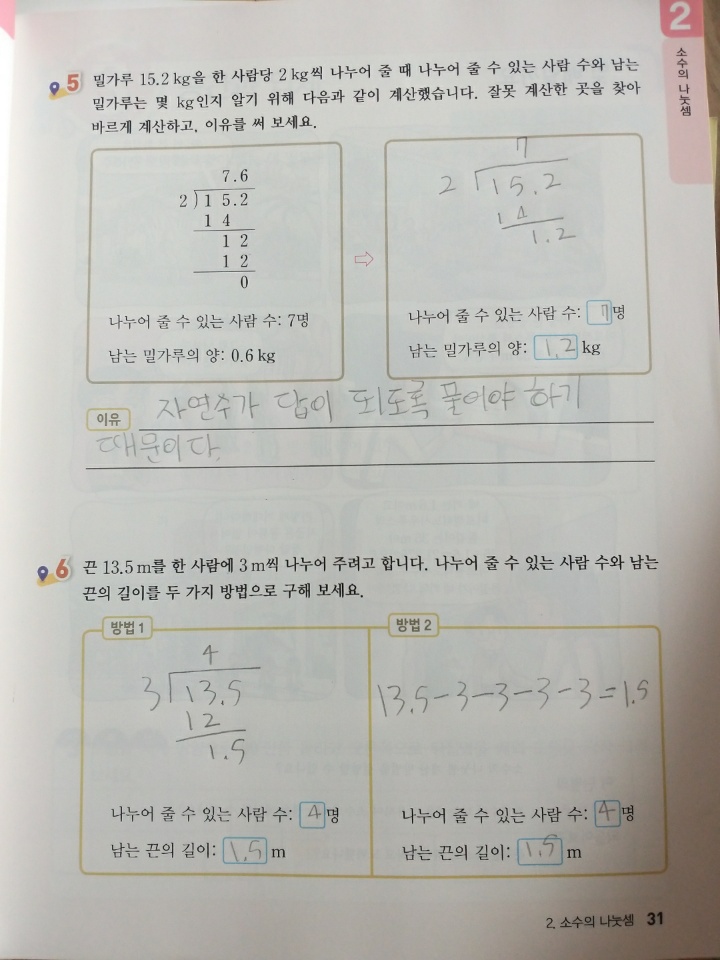 2
소수의 나눗셈
5 밀가루 15.2 kg을 한 사람당 2 kg씩 나누어 줄 때 나누어 줄 수 있는 사람 수와 남는
밀가루는 몇 kg인지 알기 위해 다음과 같이 계산했습니다. 잘못 계산한 곳을 찾아
바르게 계산하고, 이유를 써 보세요.
7.6
2)15.2
14
12
12
0
나누어 줄 수 있는 사람 수: 7명
남는 밀가루의 양: 0.6 kg
⇨
7
2)15.2
14
1.2
나누어 줄 수 있는 사람 수: 7명
남는 밀가루의 양: 1.2 kg
이유 자연수가 답이 되도록 풀어야 하기
때문이다.
6 끈 13.5 m를 한 사람에 3 m씩 나누어 주려고 합니다. 나누어 줄 수 있는 사람 수와 남는
끈의 길이를 두 가지 방법으로 구해 보세요.
방법 1
4
3)13.5
12
1.5
나누어 줄 수 있는 사람 수: 4명
남는 끈의 길이: 1.5 m
방법 2
13.5-3-3-3-3=1.5
나누어 줄 수 있는 사람 수: 4명
남는 끈의 길이: 1.5 m
2. 소수의 나눗셈 31